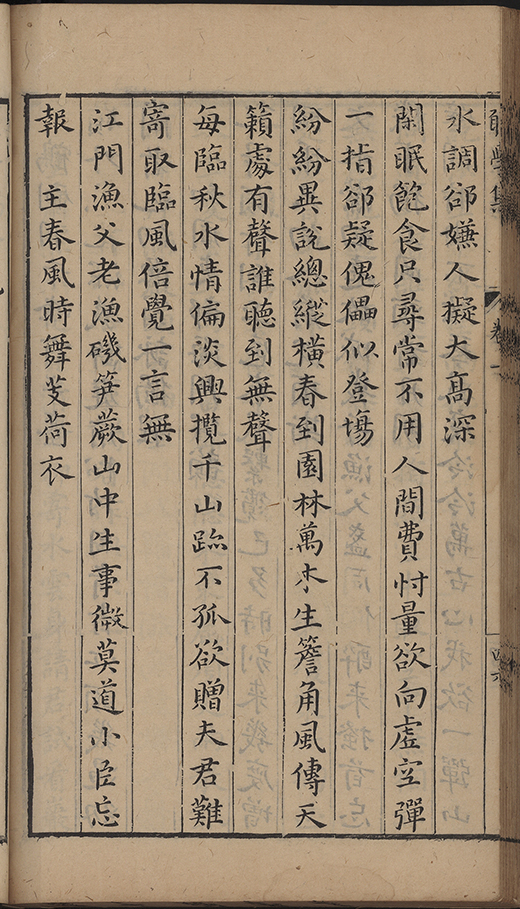 水調郤嫌人擬大高深
閑眠飽食只尋常不用人間費忖量欲向虛空彈
一指郤疑傀儡似登塲
紛紛異說總縱橫春到園林萬木生簷角風傳天
籟處有聲誰聽到無聲
每臨秋水情偏淡興攬千山跡不孤欲贈夫君難
寄取臨風倍覺一言無
江門漁父老漁磯笋蕨山中生事微莫道小臣忘
報 主春風時舞芰荷衣